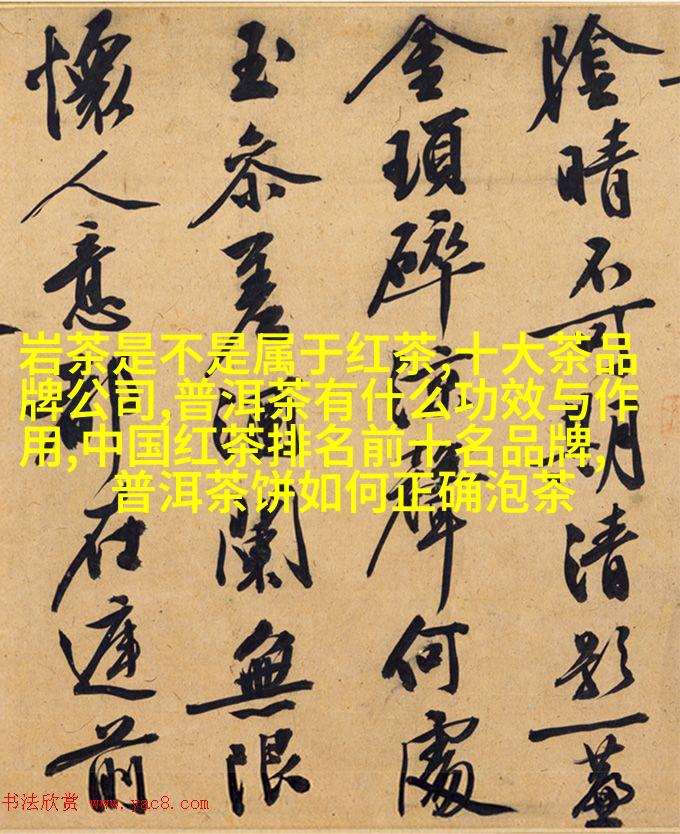 陰晴不可期清影一
金瑣碎涼聲何處
玉參差闌無限
懷人意都在前
岩茶是不是属于红茶,十大茶品
牌公司,普洱茶有什么功效与作
用,中国红茶排名前十名品牌,
普洱茶饼如何正确泡茶
书法欣赏 www.yac8.com